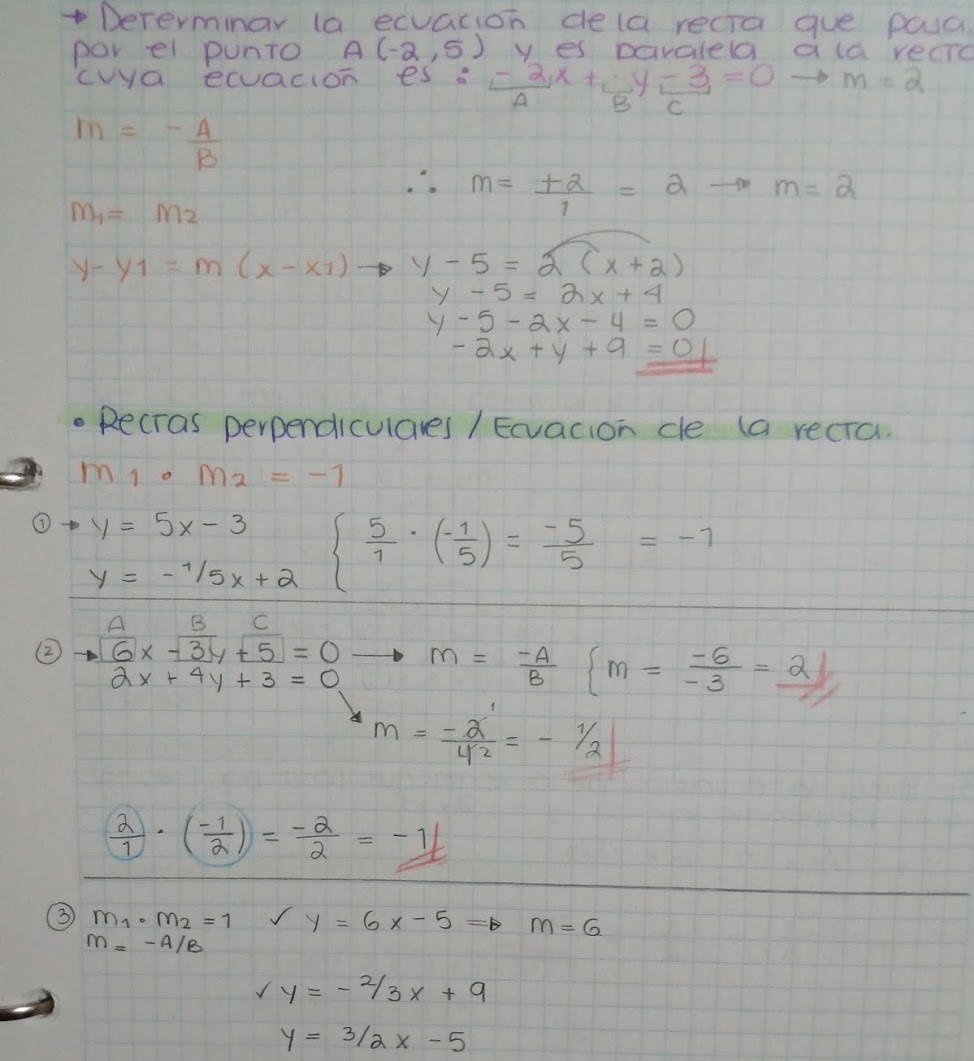 → Determinar la ecuación de la recta que pasa
por el punto A(-2,5) y es paralela a la recta
cuya ecuación es: -2x + y - 3 = 0 → m = 2
A B C
m = -A/B
∴ m = +2/1 = 2 → m = 2
m1 = m2
y-y1 = m (x-x1) → y - 5 = 2 (x+2)
y - 5 = 2x + 4
y - 5 - 2x - 4 = 0
-2x + y + 9 = 0
• Rectas perpendiculares / Ecuación de la recta.
m1 • m2 = -1
① → y = 5x - 3 { 5/1 · (-1/5) = -5/5 = -1
y = -1/5x + 2
A B C
② → 6x - 3y + 5 = 0 → m = -A/B { m = -6/-3 = 2
2x + 4y + 3 = 0
m = -2/4 1/2 = - 1/2
2/1 · (-1/2) = -2/2 = -1
③ m1 • m2 = 1 ✓ y = 6x - 5 ⇒ m = 6
m = -A/B
✓ y = -2/3x + 9
y = 3/2x - 5